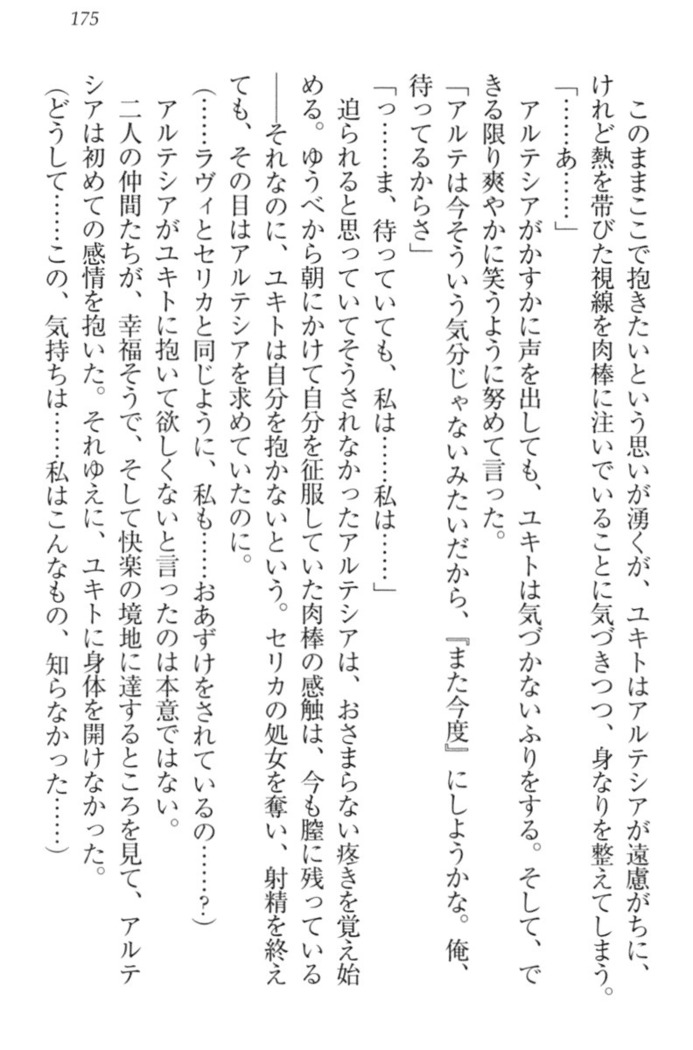 175
このままここで抱きたいという思いが湧くが、ユキトはアルテシアが遠慮がちに、
けれど熱を帯びた視線を肉棒に注いでいることに気づきつつ、身なりを整えてしまう。
「……あ……」
アルテシアがかすかに声を出しても、ユキトは気づかないふりをする。そして、で
きる限り爽やかに笑うように努めて言った。
「アルテは今そういう気分じゃないみたいだから、『また今度』にしようかな。俺、
待ってるからさ」
「っ……ま、待っていても、私は……私は……」
迫られると思っていてそうされなかったアルテシアは、おさまらない疼きを覚え始
める。ゆうべから朝にかけて自分を征服していた肉棒の感触は、今も膣に残っている
――それなのに、ユキトは自分を抱かないという。セリカの処女を奪い、射精を終え
ても、その目はアルテシアを求めていたのに。
(……ラヴィとセリカと同じように、私も……おあずけをされているの……?)
アルテシアがユキトに抱いて欲しくないと言ったのは本意ではない。
二人の仲間たちが、幸福そうで、そして快楽の境地に達するところを見て、アルテ
シアは初めての感情を抱いた。それゆえに、ユキトに身体を開けなかった。
(どうして……この、気持ちは……私はこんなもの、知らなかった……)